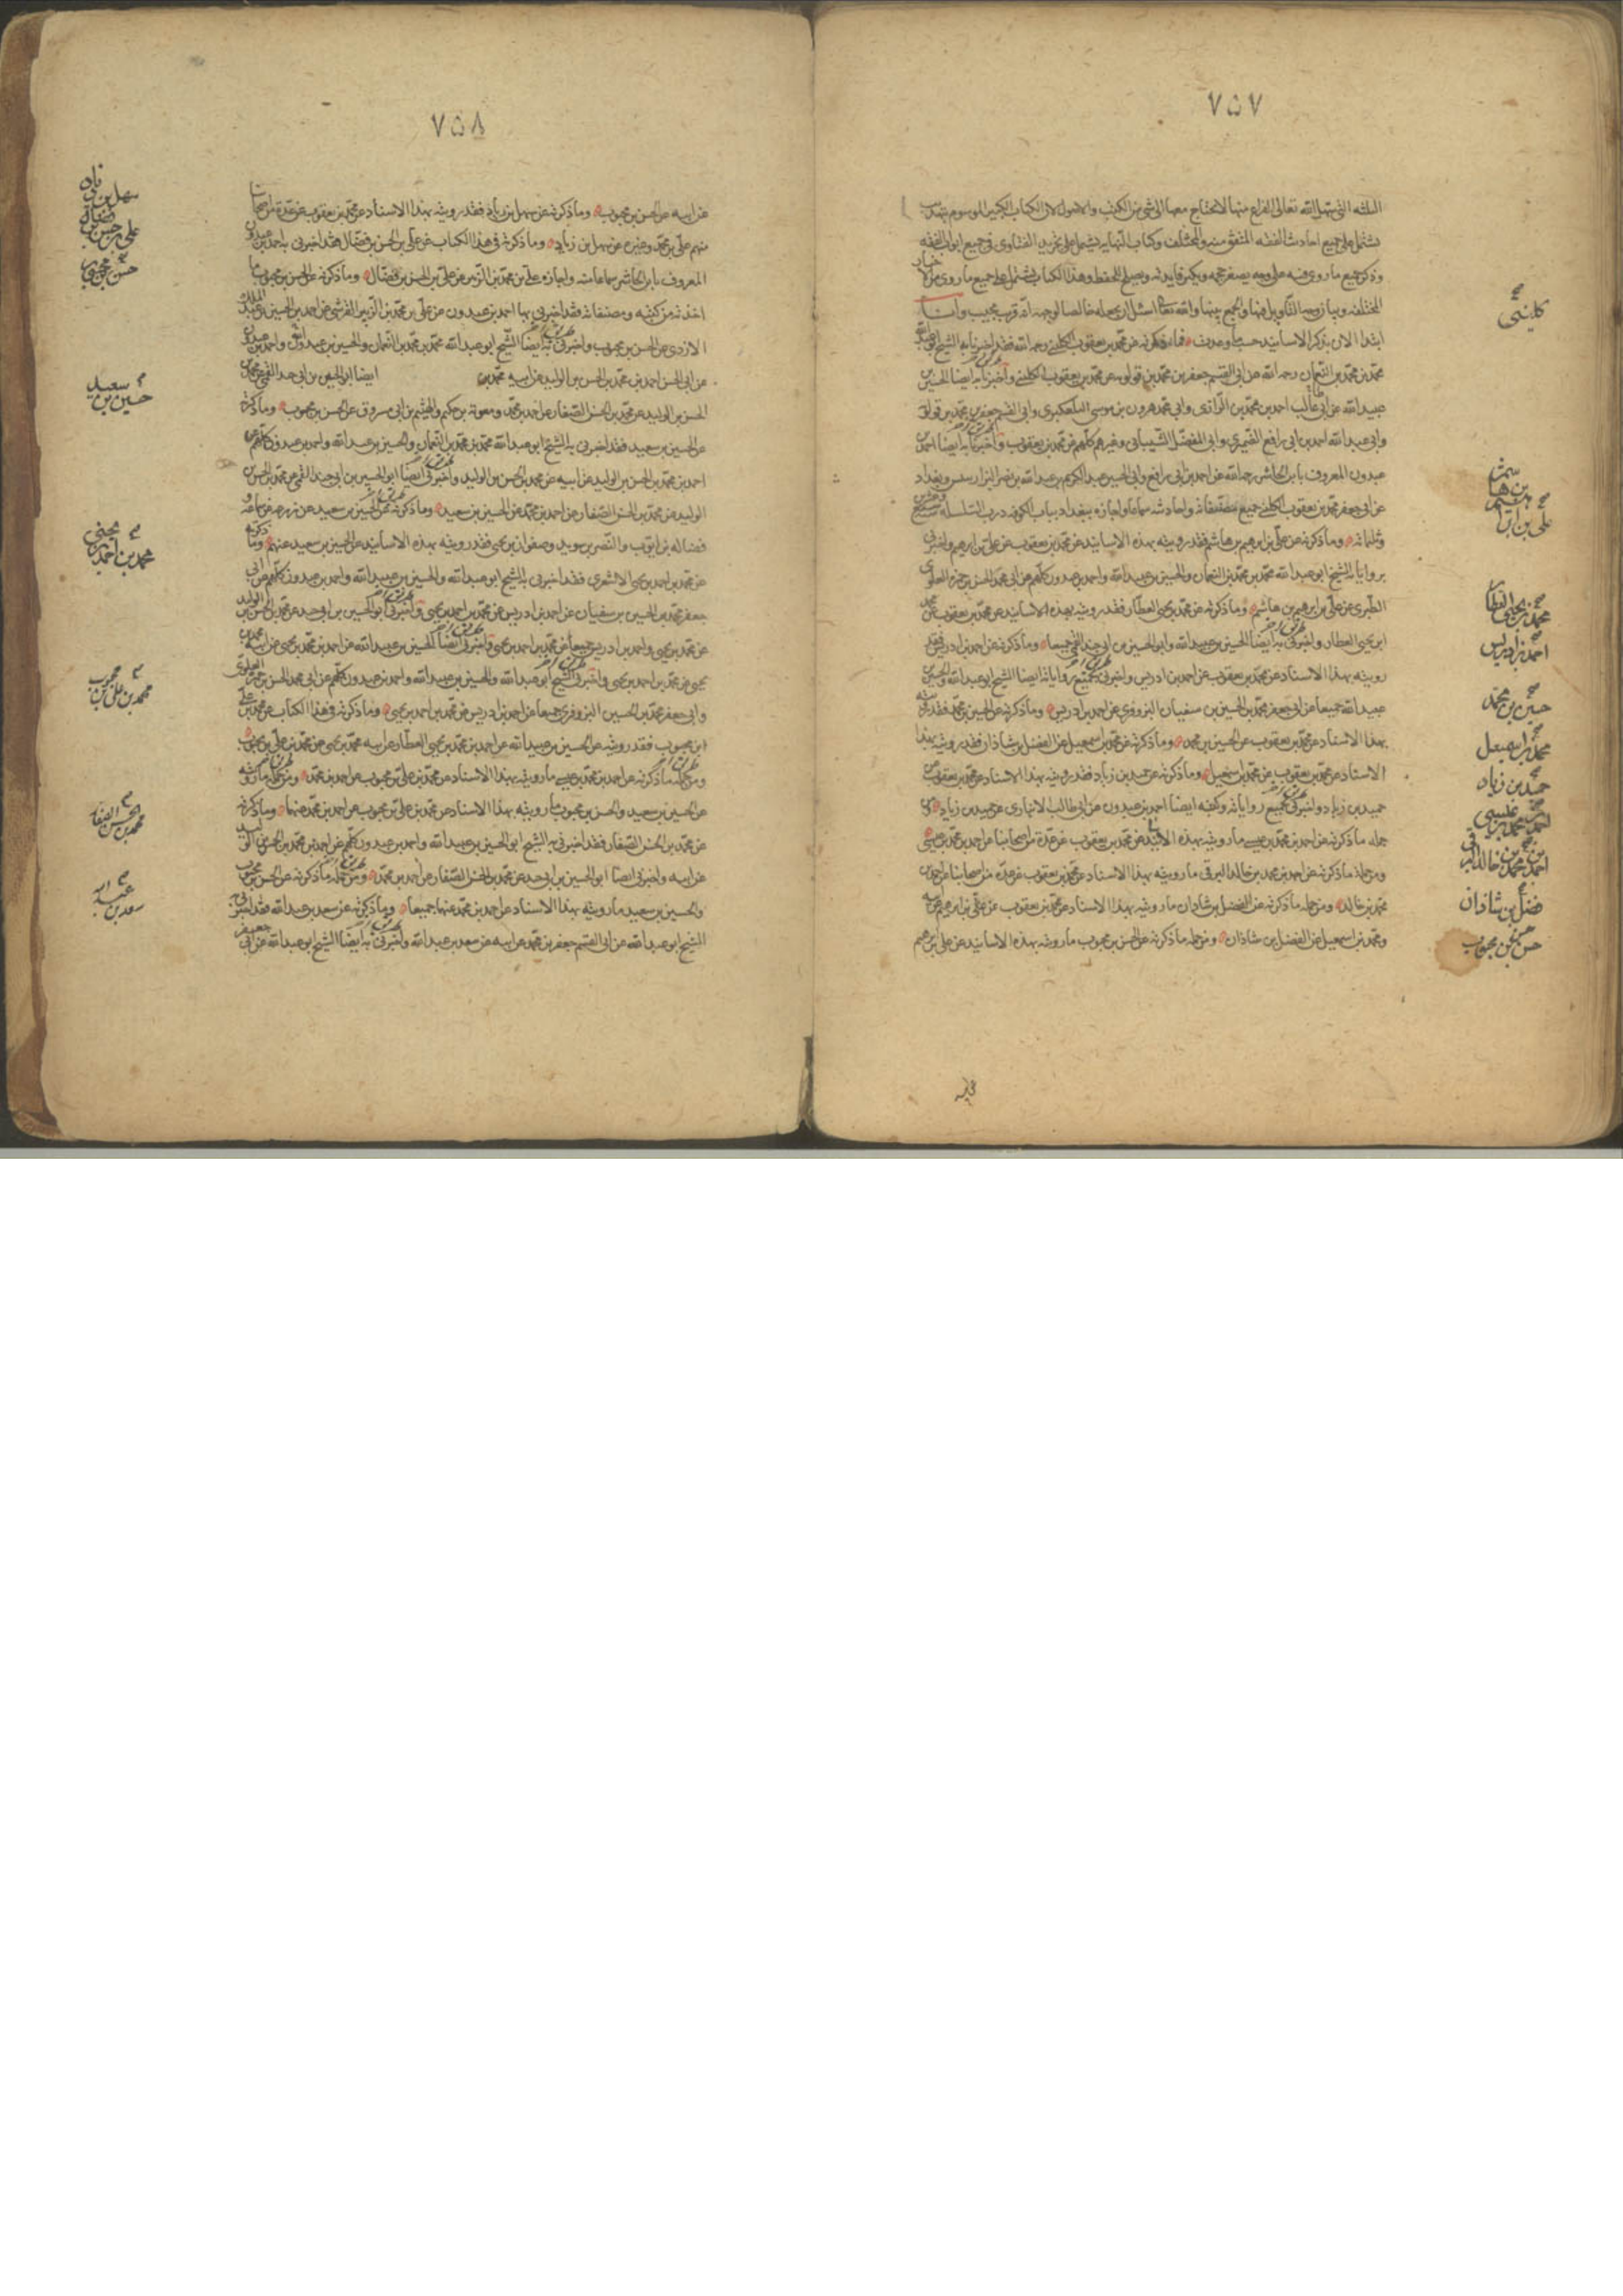 ٧٥٧
الثلثة التي سهل الله تعالى الفراغ منها لا نحتاج معها الى شي من الكتب والاصول لان الكتاب الكبير الموسوم بتهذيب
يشتمل على جميع احاديث الفقه المتفق منه والمختلف وكتاب النهاية يشتمل على تجريد الفتاوى في جميع ابواب الفقه
وذكر جميع ما روى فيه على وجه يصغر حجمه ويكثر فايدته ويصلح للحفظ وهذا الكتاب يشتمل على جميع ما روى من الاخبار
المختلفة وبيان وجه التاويل فيها والجمع بينها والله تعالى اسئل ان يجعله خالصا لوجهه انه قريب مجيب وانا
ابتدا الان بذكر الاسانيد حسب ما وعدت فما ذكرته عن محمد بن يعقوب الكليني رحمه الله فقد اخبرنا به الشيخ ابو عبد الله
محمد بن محمد بن النعمان رحمه الله عن ابي القسم جعفر بن محمد بن قولويه عن محمد بن يعقوب الكليني واخبرنا به ايضا الحسين بن
عبيد الله عن ابي غالب احمد بن محمد بن الرازى وابي محمد هرون بن موسى التلعكبرى وابي القسم جعفر بن محمد بن قولويه
وابي عبد الله احمد بن ابي رافع الصيمرى وابي المفضل الشيباني وغيرهم كلهم عن محمد بن يعقوب واخبرنا به ايضا احمد بن
عبدون المعروف بابن الحاشر رحمه الله عن احمد بن ابي رافع وابي الحسين عبد الكريم بن عبد الله بن نصر البزاز بتنيس وبغداد
عن ابي جعفر محمد بن يعقوب الكليني جميع مصنفاته واحاديثه سماعا واجازة ببغداد بباب الكوفه درب السلسله سنة سبع وعشرين
وثلثمائه وما ذكرته عن علي بن ابرهيم بن هاشم فقد رويته بهذه الاسانيد عن محمد بن يعقوب عن علي بن ابرهيم واخبرني
برواياته الشيخ ابو عبد الله محمد بن محمد بن النعمان والحسين بن عبيد الله واحمد بن عبدون كلهم عن ابي محمد الحسن بن حمزة العلوى
الطبرى عن علي بن ابرهيم بن هاشم وما ذكرته عن محمد بن يحيى العطار فقد رويته بهذه الاسانيد عن محمد بن يعقوب عن محمد
ابن يحيى العطار واخبرني به ايضا الحسين بن عبيد الله وابو الحسين بن ابي جيد القمي جميعا وما ذكرته عن احمد بن ادريس فقد
رويته بهذا الاسناد عن محمد بن يعقوب عن احمد بن ادريس واخبرني بجميع رواياته ايضا الشيخ ابو عبد الله والحسين بن
عبيد الله جميعا عن ابي جعفر محمد بن الحسين بن سفيان البزوفرى عن احمد بن ادريس وما ذكرته عن الحسين بن محمد فقد رويته
بهذا الاسناد عن محمد بن يعقوب عن الحسين بن محمد وما ذكرته عن محمد بن اسمعيل عن الفضل بن شاذان فقد رويته بهذا
الاسناد عن محمد بن يعقوب عن محمد بن اسمعيل وما ذكرته عن حميد بن زياد فقد رويته بهذا الاسناد عن محمد بن يعقوب عن
حميد بن زياد واخبرني بجميع رواياته وكتبه ايضا احمد بن عبدون عن ابي طالب الانبارى عن حميد بن زياد ومن
جمله ما ذكرته عن احمد بن محمد بن عيسى ما رويته بهذه الاسانيد عن محمد بن يعقوب عن عدة من اصحابنا عن احمد بن محمد بن عيسى
ومن جملة ما ذكرته عن احمد بن محمد بن خالد البرقي ما رويته بهذا الاسناد عن محمد بن يعقوب عن عدة من اصحابنا عن احمد بن
محمد بن خالد ومن جمله ما ذكرته عن الفضل بن شاذان ما رويته بهذا الاسناد عن محمد بن يعقوب عن علي بن ابرهيم عن ابيه
ومحمد بن اسمعيل عن الفضل بن شاذان ومن جمله ما ذكرته عن الحسن بن محبوب ما رويته بهذه الاسانيد عن علي بن ابرهيم
كليني
علي بن ابراهيم بن هاشم
محمد بن يحيى العطار
احمد بن ادريس
حسين بن محمد
محمد بن اسمعيل
حميد بن زياد
احمد بن محمد بن عيسى
احمد بن محمد بن خالد البرقي
فضل بن شاذان
حسن بن محبوب
٧٥٨
عن ابيه عن الحسن بن محبوب وما ذكرته عن سهل بن زياد فقد رويته بهذا الاسناد عن محمد بن يعقوب عن عدة من اصحابنا
منهم علي بن محمد وغيره عن سهل بن زياد وما ذكرته في هذا الكتاب عن علي بن الحسن بن فضال فقد اخبرني به احمد بن عبدون
المعروف بابن الحاشر سماعا منه واجازة عن علي بن محمد بن الزبير عن علي بن الحسن بن فضال وما ذكرته عن الحسن بن محبوب ما
اخذته من كتبه ومصنفاته فقد اخبرني بها احمد بن عبدون عن علي بن محمد بن الزبير القرشي عن احمد بن الحسين بن عبد الملك
الازدى عن الحسن بن محبوب واخبرني به ايضا الشيخ ابو عبد الله محمد بن محمد بن النعمان والحسين بن عبيد الله واحمد بن عبدون
عن ابي الحسن احمد بن محمد بن الحسن بن الوليد عن ابيه محمد بن ايضا ابو الحسين بن ابي جيد القمي عن محمد بن
الحسن بن الوليد عن محمد بن الحسن الصفار عن احمد بن محمد ومعوية بن حكيم والهيثم بن ابي مسروق عن الحسن بن محبوب وما ذكرته
عن الحسين بن سعيد فقد اخبرني به الشيخ ابو عبد الله محمد بن محمد بن النعمان والحسين بن عبيد الله واحمد بن عبدون كلهم عن
احمد بن محمد بن الحسن بن الوليد عن ابيه عن محمد بن الحسن بن الوليد واخبرني ايضا ابو الحسين بن ابي جيد القمي عن محمد بن الحسن
الوليد عن محمد بن الحسن الصفار عن احمد بن محمد عن الحسين بن سعيد وما ذكرته عن الحسين بن سعيد عن زرعه عن سماعه و
فضاله بن ايوب والنضر بن سويد وصفوان بن يحيى فقد رويته بهذه الاسانيد عن الحسين بن سعيد عنهم وما ذكرته
عن محمد بن احمد بن يحيى الاشعرى فقد اخبرني به الشيخ ابو عبد الله والحسين بن عبيد الله واحمد بن عبدون كلهم عن ابي
جعفر محمد بن الحسين بن سفيان عن احمد بن ادريس عن محمد بن احمد بن يحيى واخبرني ابو الحسين بن ابي جيد عن محمد بن الحسن بن الوليد
عن محمد بن يحيى واحمد بن ادريس جميعا عن محمد بن احمد بن يحيى واخبرني ايضا الحسين بن عبيد الله عن احمد بن محمد بن يحيى عن ابيه محمد بن
يحيى عن محمد بن احمد بن يحيى واخبرني الشيخ ابو عبد الله والحسين بن عبيد الله واحمد بن عبدون كلهم عن ابي محمد الحسن بن حمزة العلوى
وابي جعفر محمد بن الحسين البزوفرى جميعا عن احمد بن ادريس عن محمد بن احمد بن يحيى وما ذكرته في هذا الكتاب عن محمد بن علي
ابن محبوب فقد رويته عن الحسين بن عبيد الله عن احمد بن محمد بن يحيى العطار عن ابيه محمد بن يحيى عن محمد بن علي بن محبوب
ومن جمله ما ذكرته عن احمد بن محمد بن عيسى ما رويته بهذا الاسناد عن محمد بن علي بن محبوب عن احمد بن محمد ومن جمله ما رويته
عن الحسين بن سعيد والحسن بن محبوب ما رويته بهذا الاسناد عن محمد بن علي بن محبوب عن احمد بن محمد عنهما وما ذكرته
عن محمد بن الحسن الصفار فقد اخبرني به الشيخ ابو الحسين بن عبيد الله واحمد بن عبدون كلهم عن احمد بن محمد بن الحسن بن الوليد
عن ابيه واخبرني ايضا ابو الحسين بن ابي جيد عن محمد بن الحسن الصفار عن احمد بن محمد ومن جمله ما ذكرته عن الحسن بن محبوب
والحسين بن سعيد ما رويته بهذا الاسناد عن احمد بن محمد عنهما جميعا وما ذكرته عن سعد بن عبد الله فقد اخبرني به
الشيخ ابو عبد الله عن ابي القسم جعفر بن محمد عن ابيه عن سعد بن عبد الله واخبرني به ايضا الشيخ ابو عبد الله عن ابي جعفر
سهل بن زياد
علي بن حسن بن فضال
حسن بن محبوب
حسين بن سعيد
محمد بن احمد بن يحيى
محمد بن علي بن محبوب
محمد بن الحسن الصفار
سعد بن عبد الله